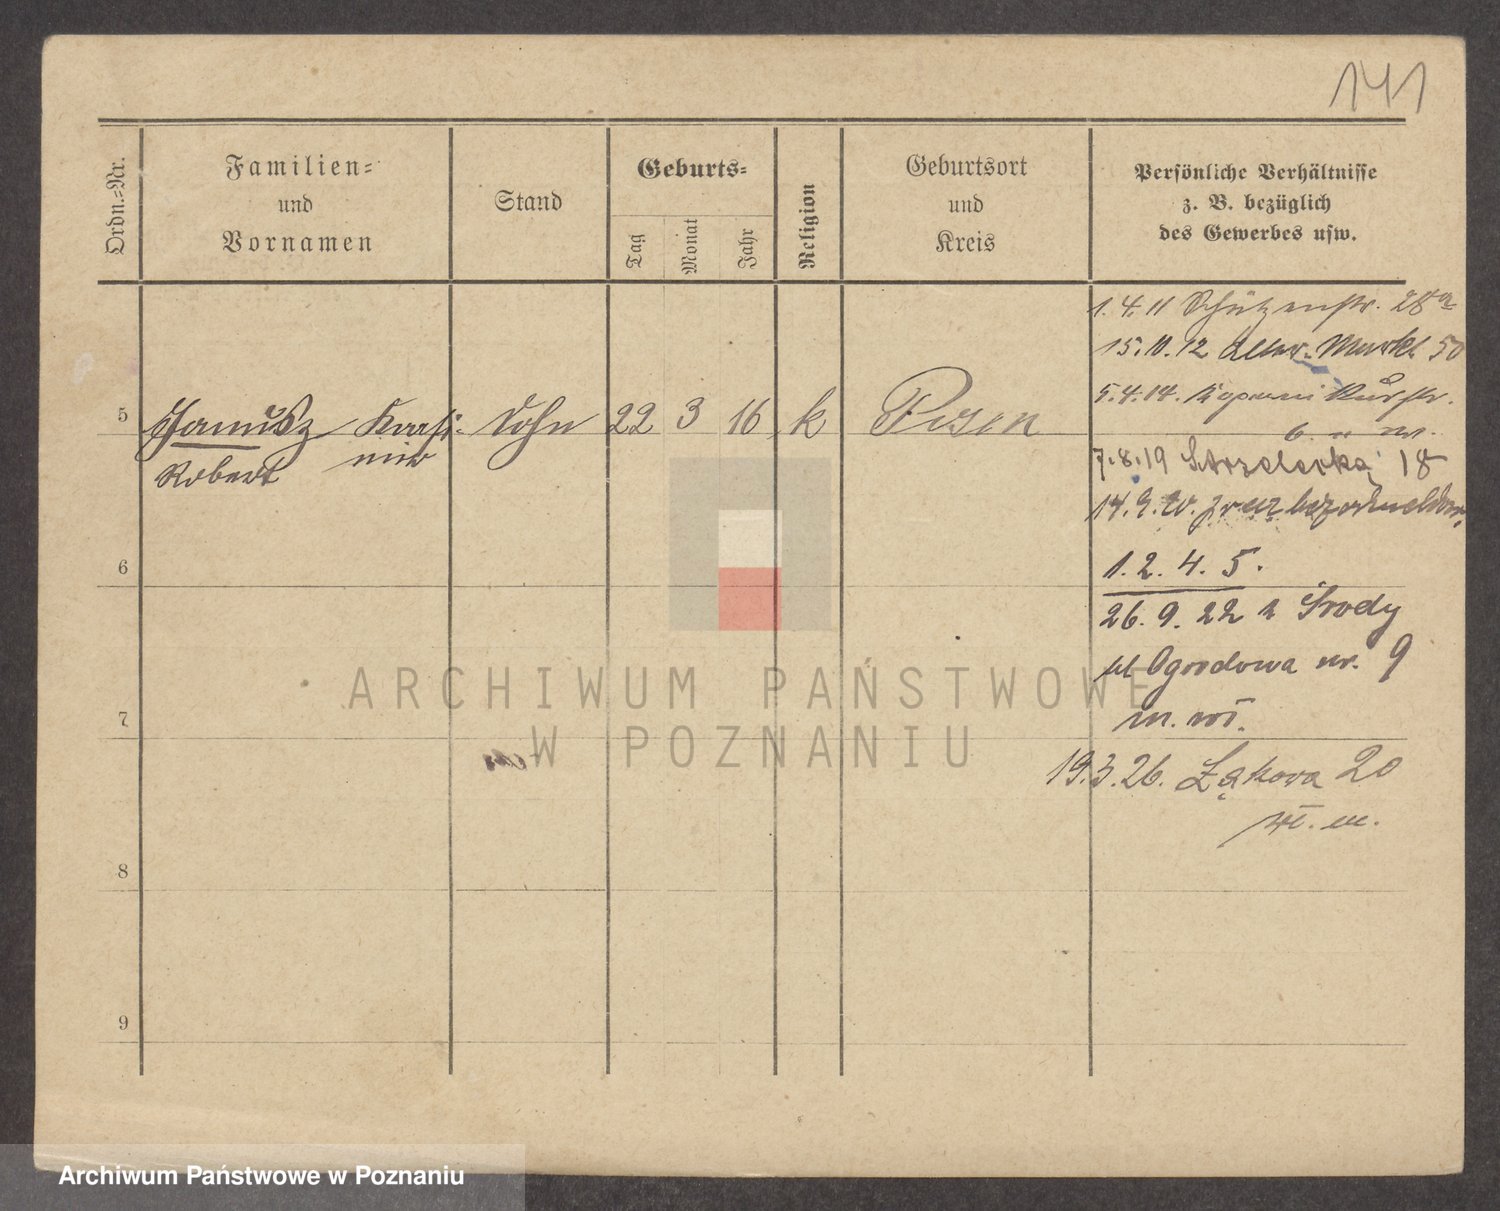 141
Ordn.-Nr.
Familien-
und
Vornamen
Stand
Geburts-
Tag
Monat
Jahr
Religion
Geburtsort
und
Kreis
Persönliche Verhältnisse
z. B. bezüglich
des Gewerbes usw.
1.4.11 Schützenstr. 28a
15.10.12 Alter Markt 50
5.4.14.
5 Janusz Kasi- Sohn 22 3 16 k Posen
mir
Robert
7.8.19 Strzelecka 18
14.9.20.
6
1. 2. 4. 5.
26. 9. 22 z Środy
ul Ogrodowa nr. 9
7
m. wł.
19.3.26. Łąkowa 20
wł. m.
8
9
ARCHIWUM PAŃSTWOWE
W POZNANIU
Archiwum Państwowe w Poznaniu